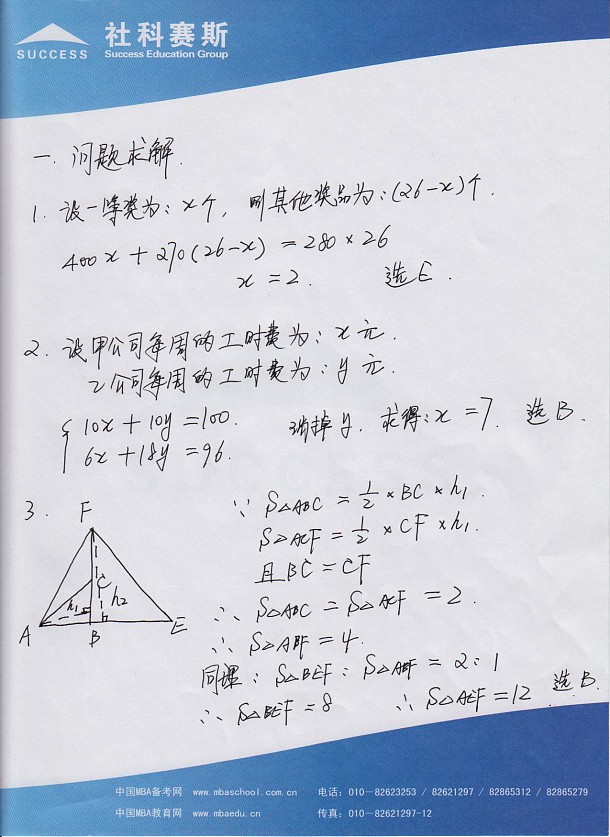 社科赛斯
SUCCESS Success Education Group
一. 问题求解.
1. 设一等奖为: x个, 则其他奖品为: (26-x)个.
400x + 270(26-x) = 280×26
x = 2. 选E.
2. 设甲公司每周的工时费为: x元.
乙公司每周的工时费为: y元.
{ 10x + 10y = 100.
6x + 18y = 96. 消掉y, 求得: x = 7. 选B.
3. ∵ S△ABC = 1/2 × BC × h₁.
S△ACF = 1/2 × CF × h₁.
且BC = CF
∴ S△ABC = S△ACF = 2.
∴ S△ABF = 4.
同理: S△BEF : S△ABF = 2:1
∴ S△BEF = 8 ∴ S△AEF = 12 选B.
F
C
h₁ h₂
A B E
中国MBA备考网 www.mbaschool.com.cn 电话: 010—82623253 / 82621297 / 82865312 / 82865279
中国MBA教育网 www.mbaedu.cn 传真: 010-82621297-12